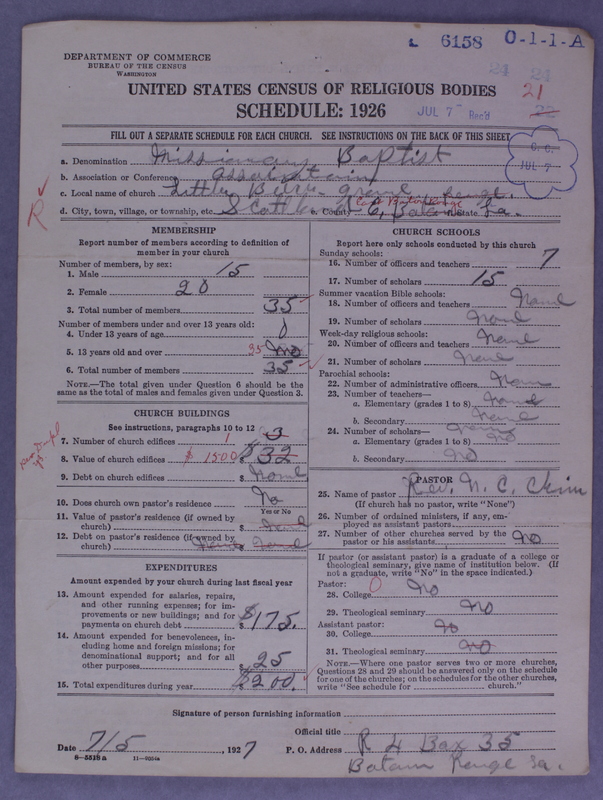 6158 O-1-1-A
DEPARTMENT OF COMMERCE
BUREAU OF THE CENSUS
WASHINGTON
24 24
UNITED STATES CENSUS OF RELIGIOUS BODIES
21
SCHEDULE: 1926
JUL 7 Rec'd
22
FILL OUT A SEPARATE SCHEDULE FOR EACH CHURCH. SEE INSTRUCTIONS ON THE BACK OF THIS SHEET
JUL 7
a. Denomination Missionary Baptist
b. Association or Conference
c. Local name of church Little
R
East Baton Rouge
d. City, town, village, or township, etc. b. County State La.
MEMBERSHIP
Report number of members according to definition of member in your church
Number of members, by sex:
1. Male 15
2. Female 20
3. Total number of members 35
Number of members under and over 13 years old:
4. Under 13 years of age 0
5. 13 years old and over 35 no
6. Total number of members 35
NOTE.—The total given under Question 6 should be the same as the total of males and females given under Question 3.
CHURCH BUILDINGS
See instructions, paragraphs 10 to 12
7. Number of church edifices 1 3
8. Value of church edifices $ 1500 $ 32
9. Debt on church edifices $ None
10. Does church own pastor's residence No
Yes or No
11. Value of pastor's residence (if owned by church) $
12. Debt on pastor's residence (if owned by church)
EXPENDITURES
Amount expended by your church during last fiscal year
13. Amount expended for salaries, repairs, and other running expenses; for improvements or new buildings; and for payments on church debt $175.
14. Amount expended for benevolences, including home and foreign missions; for denominational support; and for all other purposes $ 25
15. Total expenditures during year $200.
CHURCH SCHOOLS
Report here only schools conducted by this church
Sunday schools:
16. Number of officers and teachers 7
17. Number of scholars 15
Summer vacation Bible schools:
18. Number of officers and teachers None
19. Number of scholars None
Week-day religious schools:
20. Number of officers and teachers None
21. Number of scholars None
Parochial schools:
22. Number of administrative officers None
23. Number of teachers—
a. Elementary (grades 1 to 8) None
b. Secondary None
24. Number of scholars—
a. Elementary (grades 1 to 8) no
b. Secondary No
PASTOR
25. Name of pastor Rev. N. C.
(If church has no pastor, write "None")
26. Number of ordained ministers, if any, employed as assistant pastors
27. Number of other churches served by the pastor or his assistants No
If pastor (or assistant pastor) is a graduate of a college or theological seminary, give name of institution below. (If not a graduate, write "No" in the space indicated.)
Pastor: 0
28. College No
29. Theological seminary No
Assistant pastor:
30. College No
31. Theological seminary No
NOTE.—Where one pastor serves two or more churches, Questions 28 and 29 should be answered only on the schedule for one of the churches; on the schedules for the other churches, write "See schedule for church."
Signature of person furnishing information
Official title
Date 7/5, 1927 P. O. Address R 4 Box 35
6-5518a 11-9054a